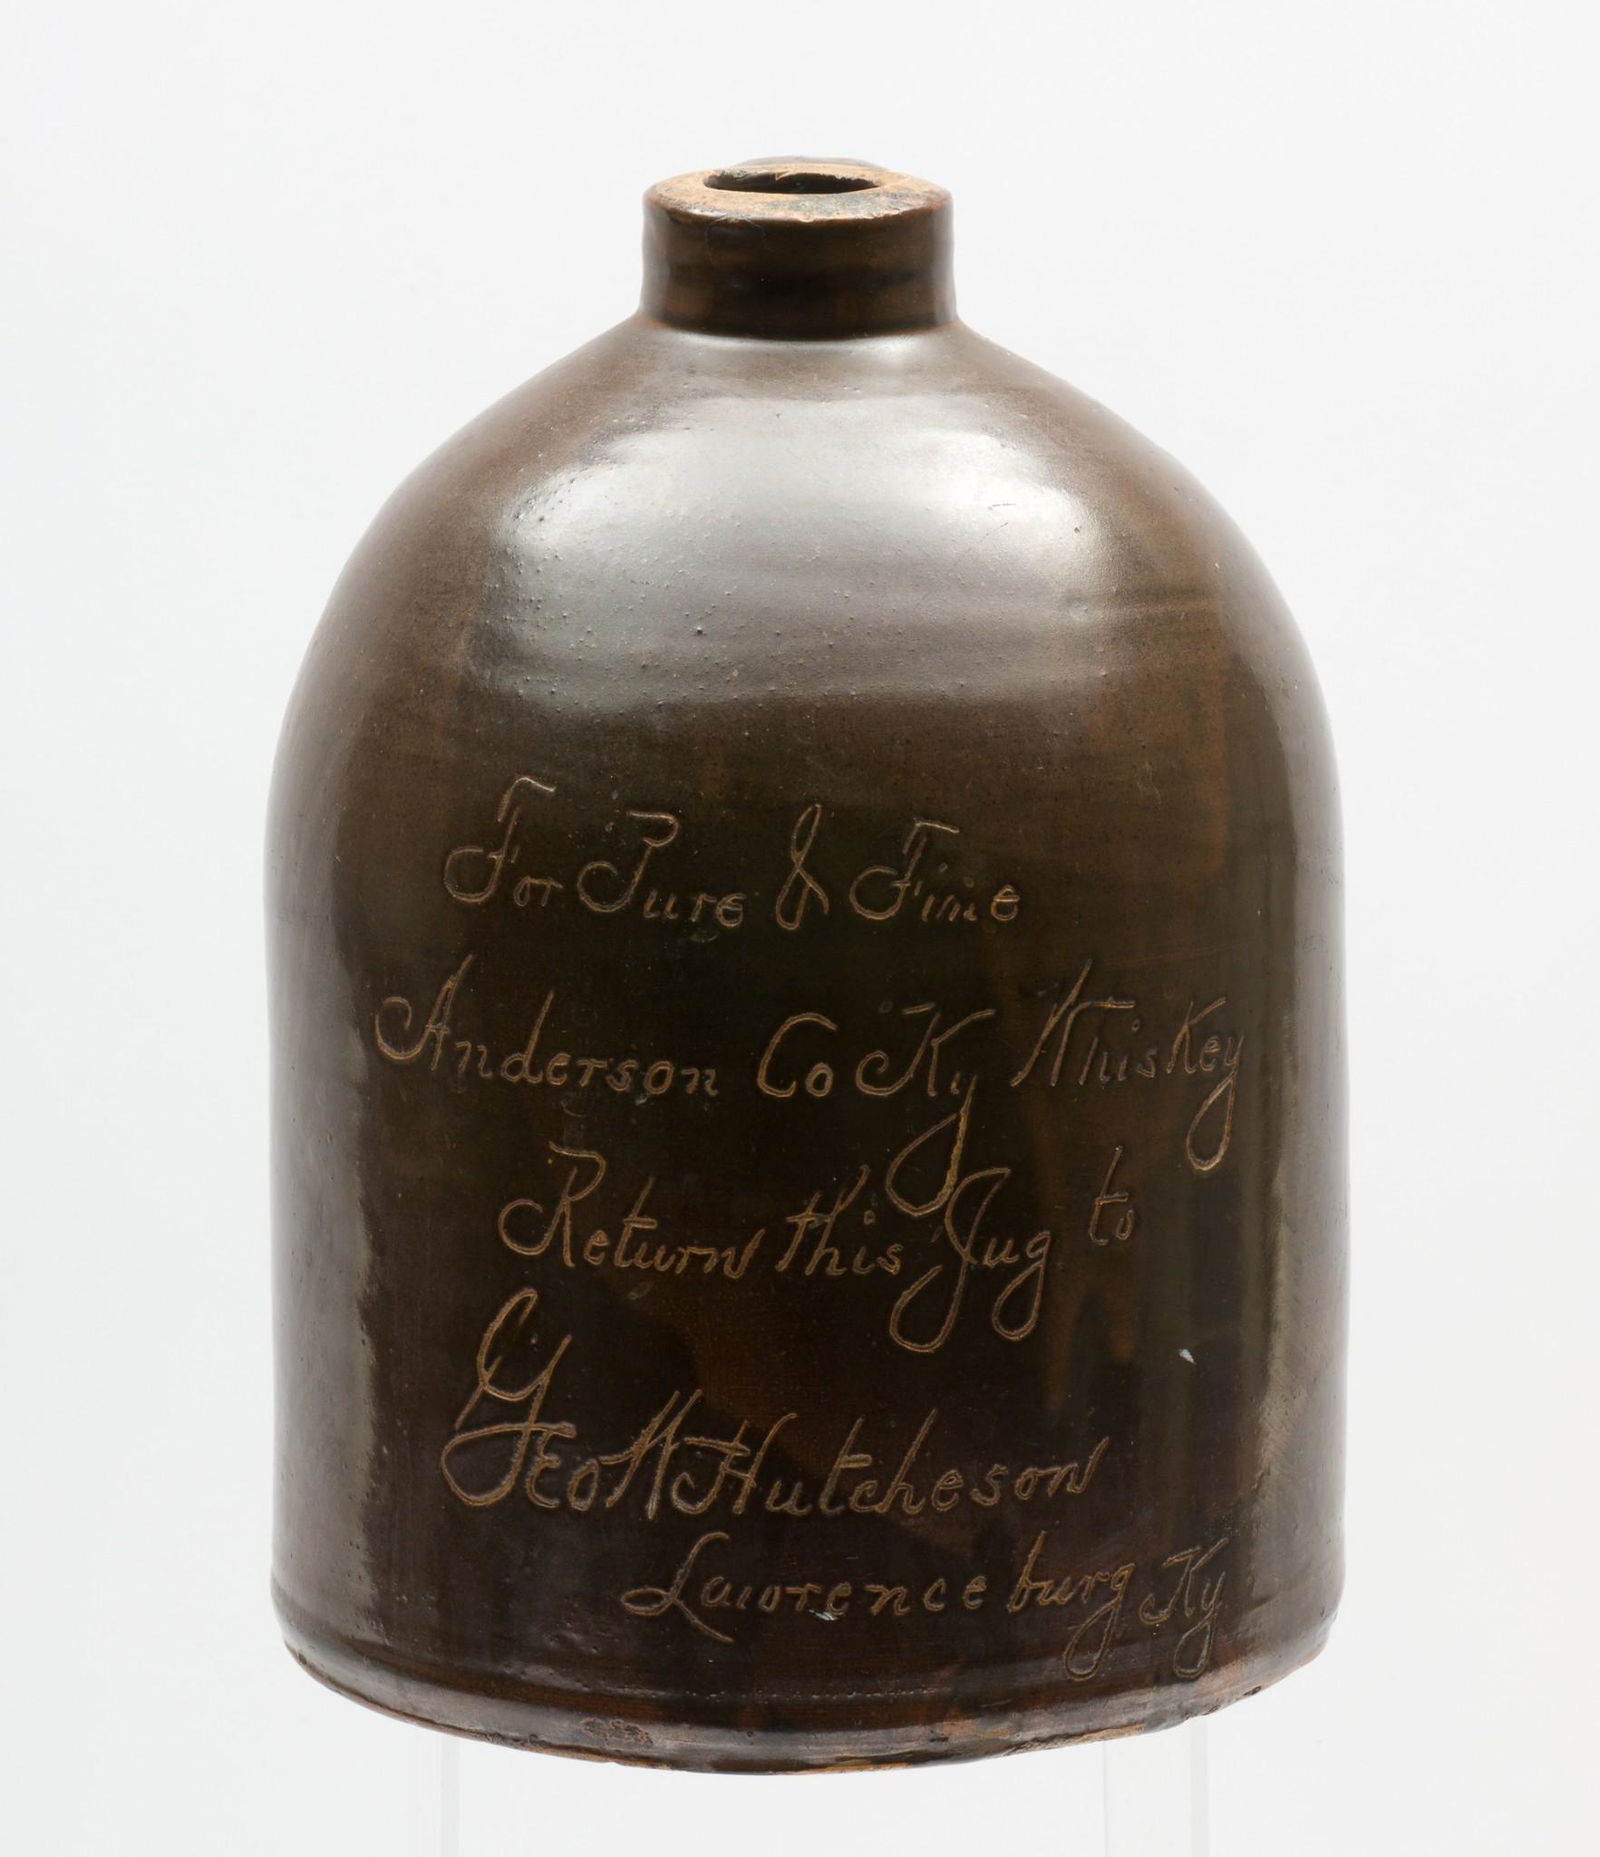 For Pure & Fine
Anderson Co Ky Whiskey
Return this Jug to
Geo W Hutcheson
Lawrenceburg Ky